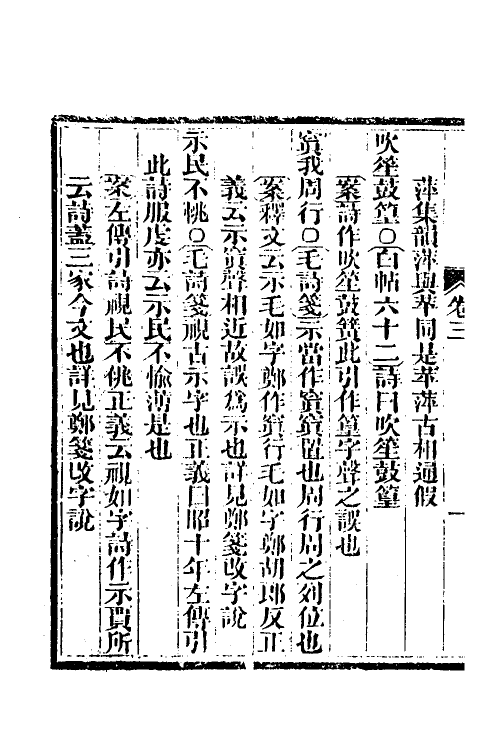 卷三
一
萍集韻萍與苹同是苹萍古相通假
吹笙鼓篁○白帖六十二詩曰吹笙鼓篁
案詩作吹笙鼓簧此引作篁字聲之誤也
寘我周行○毛詩箋示當作寘寘置也周行周之列位也
案釋文云示毛如字鄭作寘行毛如字鄭胡郎反正
義云示寘聲相近故誤為示也詳見鄭箋改字說
示民不恌○毛詩箋視古示字也正義曰昭十年左傳引
此詩服虔亦云示民不愉薄是也
案左傳引詩視民不佻正義云視如字詩作示賈所
云詩蓋三家今文也詳見鄭箋改字說